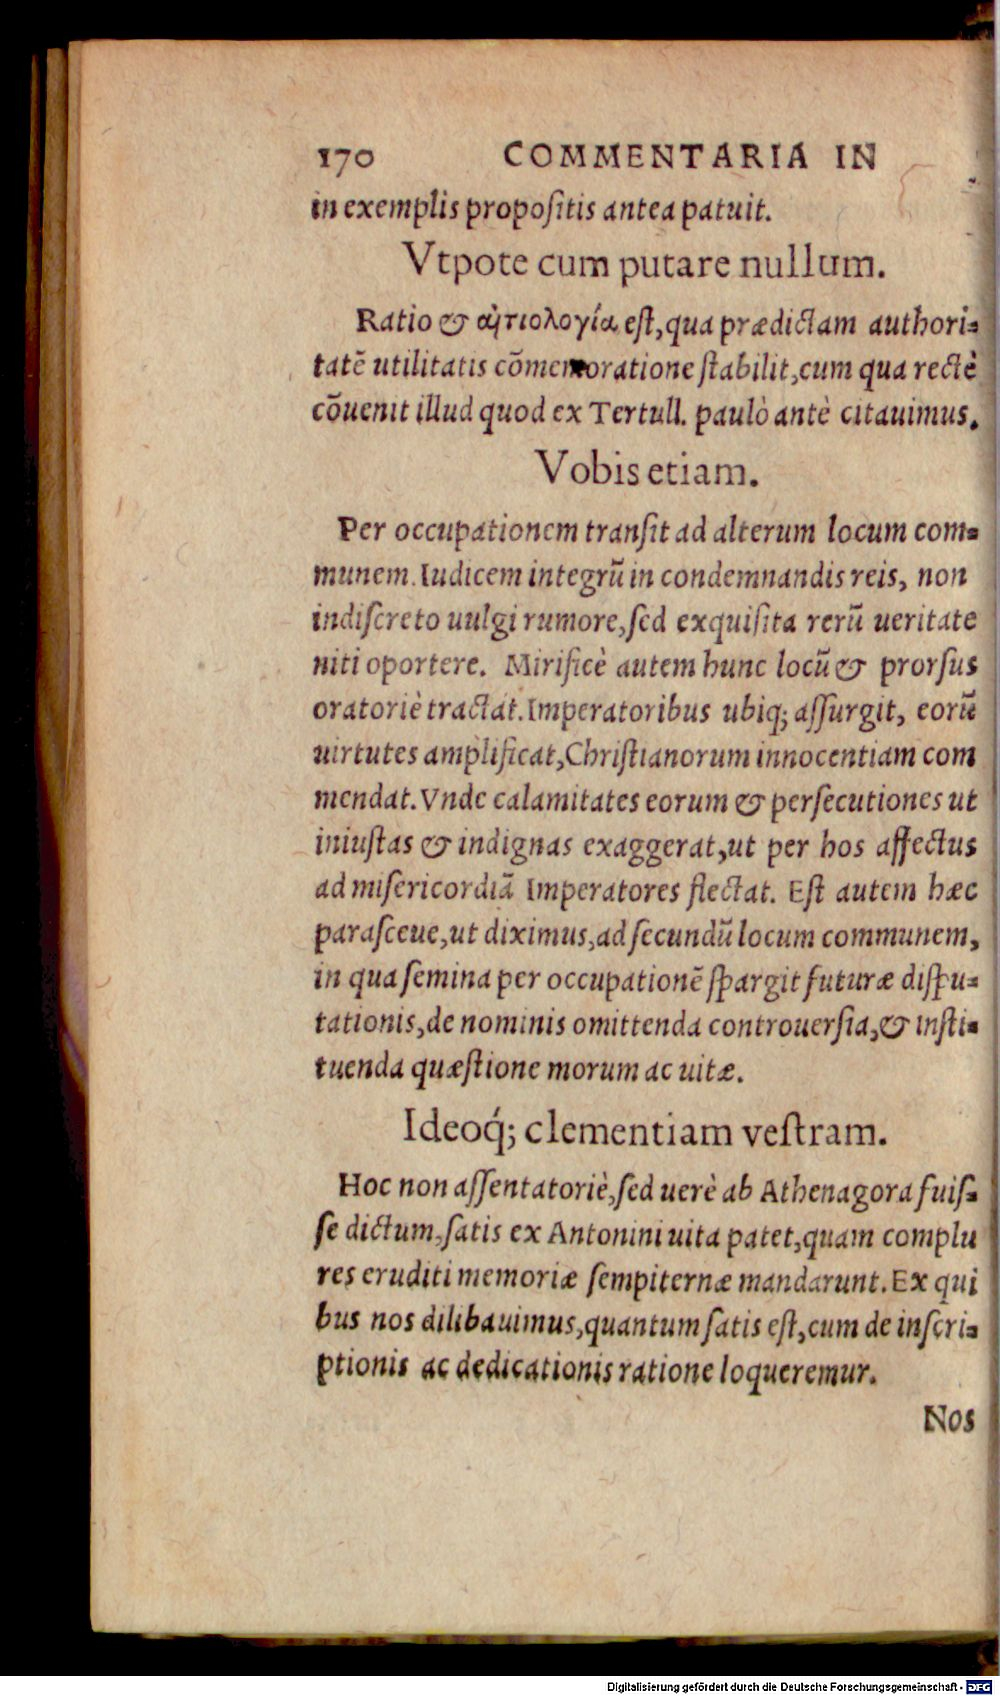 170 COMMENTARIA IN
in exemplis propoſitis antea patuit.
Vtpote cum putare nullum.
Ratio & αἰτιολογία eſt, qua prædictam authori-
tatē utilitatis cōmemoratione ſtabilit, cum qua rectè
cōuenit illud quod ex Tertull. paulò antè citauimus.
Vobis etiam.
Per occupationem tranſit ad alterum locum com-
munem. Iudicem integrū in condemnandis reis, non
indiſcreto uulgi rumore, ſed exquiſita rerū ueritate
niti oportere. Mirificè autem hunc locū & prorſus
oratoriè tractat. Imperatoribus ubiq; aſſurgit, eorū
uirtutes amplificat, Chriſtianorum innocentiam com
mendat. Vnde calamitates eorum & perſecutiones ut
iniuſtas & indignas exaggerat, ut per hos affectus
ad miſericordiā Imperatores flectat. Eſt autem hæc
paraſceue, ut diximus, ad ſecundū locum communem,
in qua ſemina per occupationē ſpargit futuræ diſpu-
tationis, de nominis omittenda controuerſia, & inſti-
tuenda quæſtione morum ac uitæ.
Ideoq́; clementiam veſtram.
Hoc non aſſentatoriè, ſed uerè ab Athenagora fuiſ-
ſe dictum, ſatis ex Antonini uita patet, quam complu
res eruditi memoriæ ſempiternæ mandarunt. Ex qui
bus nos dilibauimus, quantum ſatis eſt, cum de inſcri-
ptionis ac dedicationis ratione loqueremur.
Nos
Digitalisierung gefördert durch die Deutsche Forschungsgemeinschaft - DFG